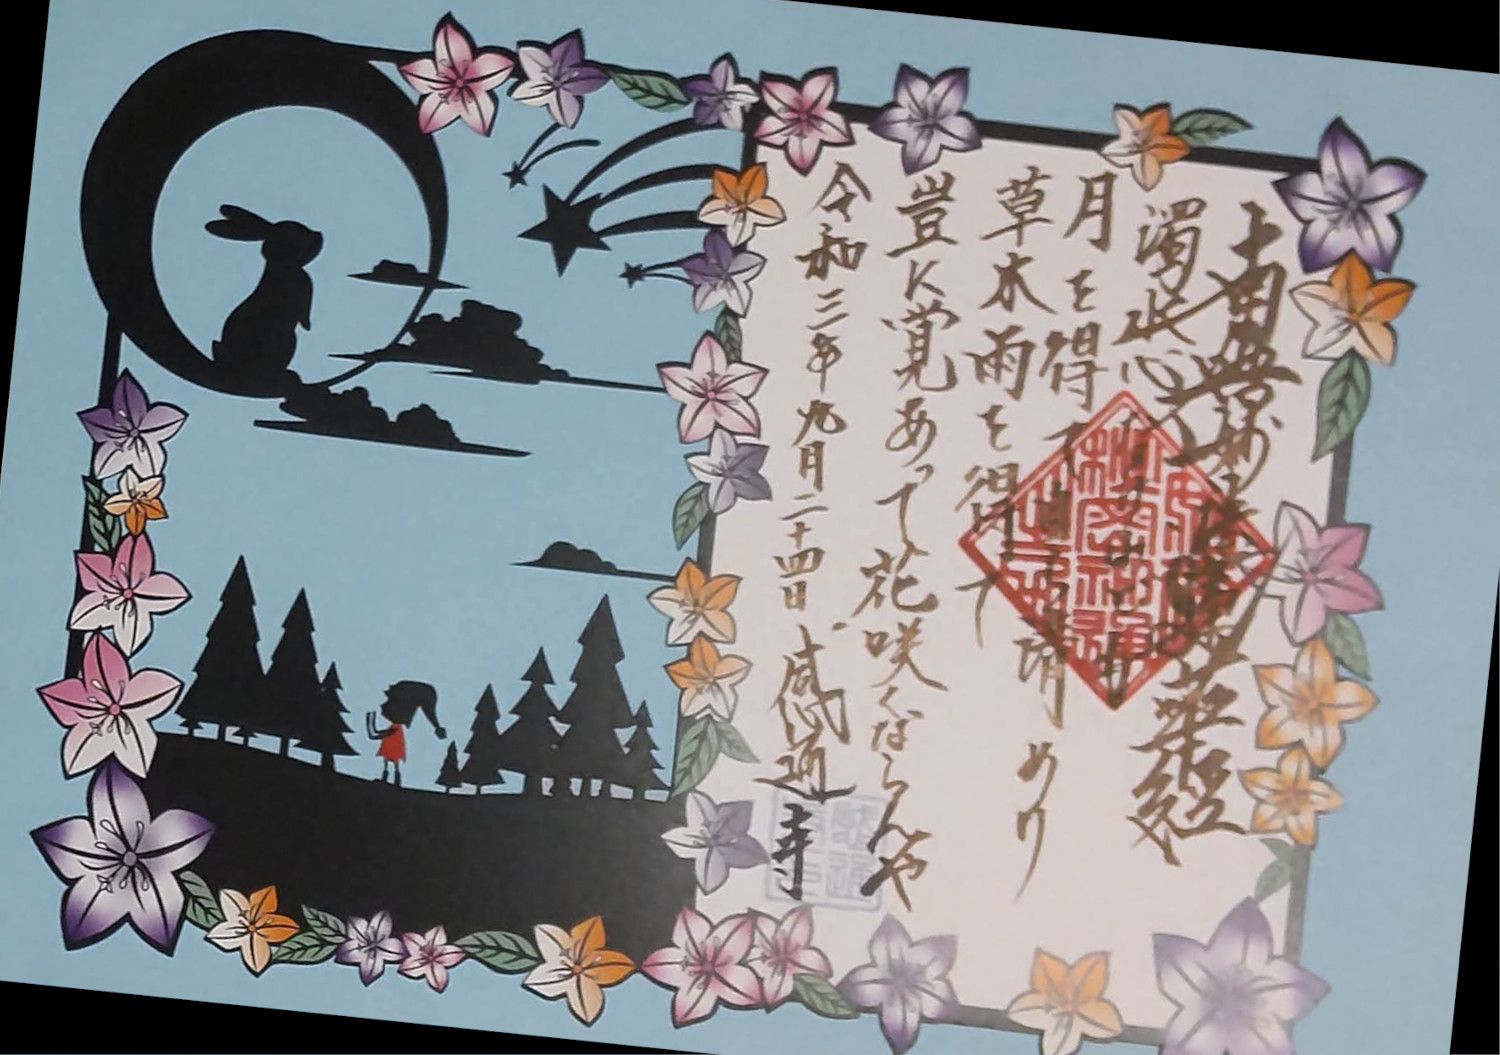 南無妙法蓮華経
濁水心
月を得て自ら清めり
草木雨を得て
豈に覚あって花咲くならんや
令和三年九月二十四日 感通寺